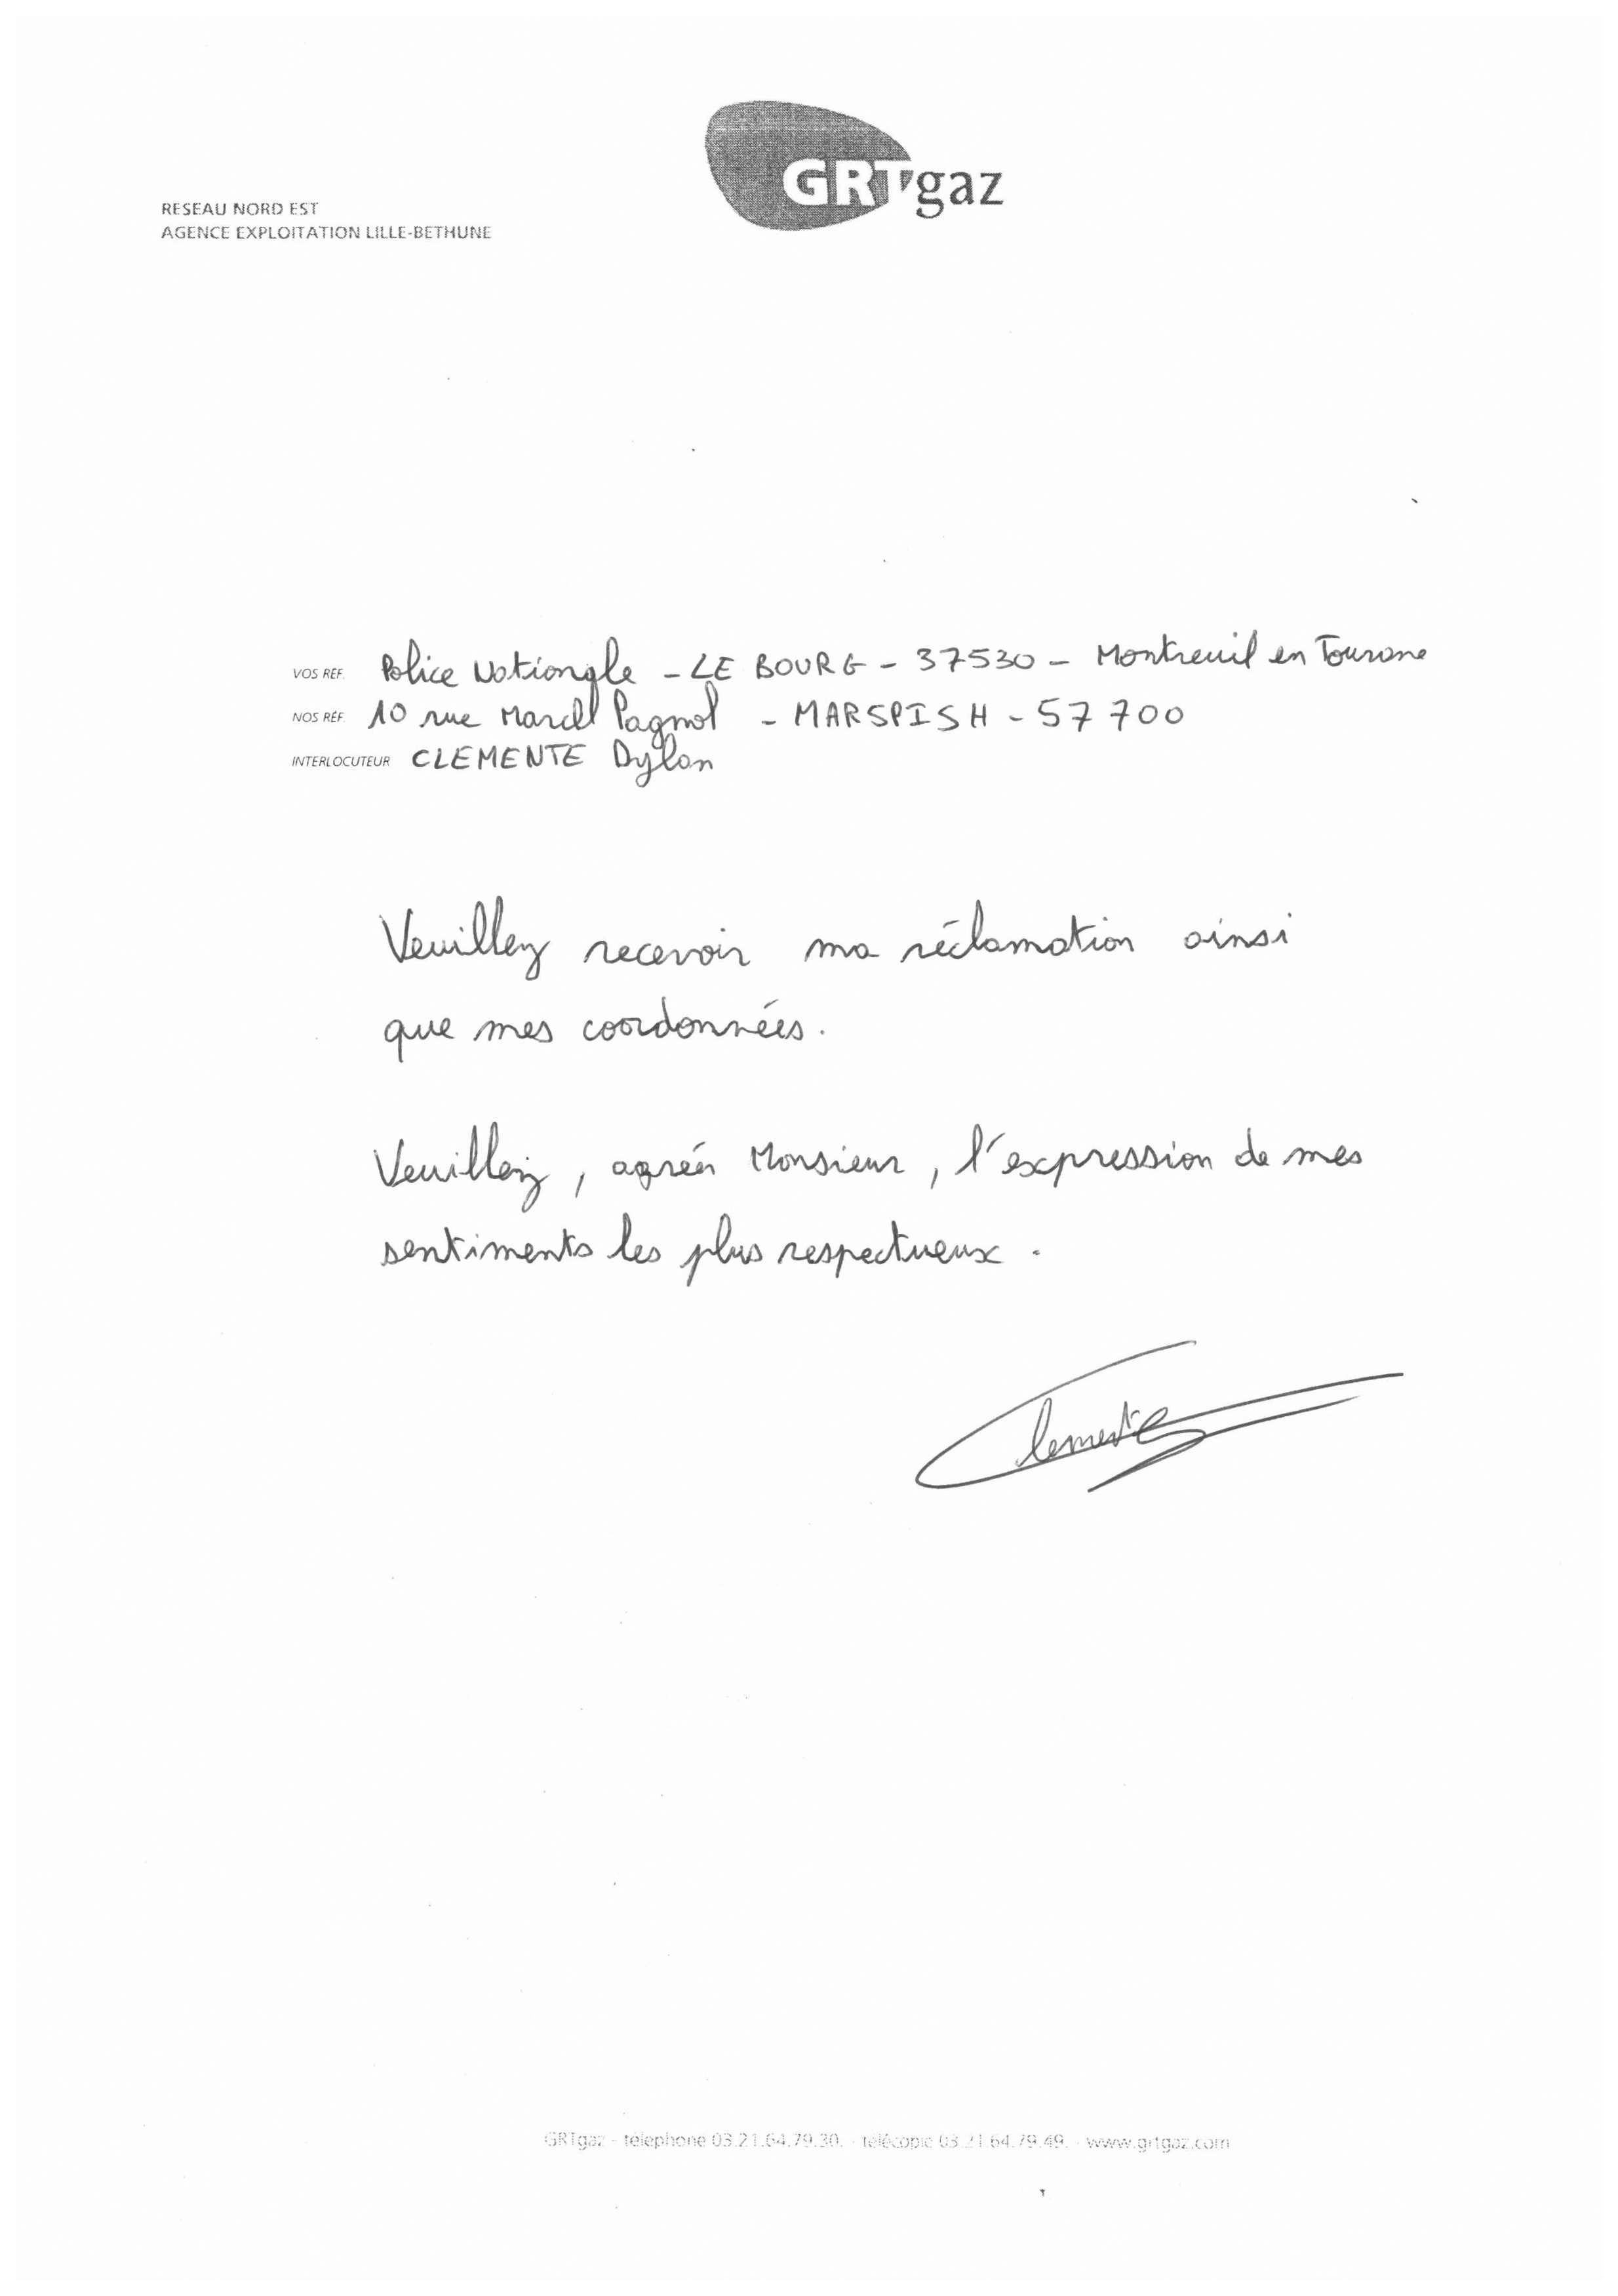 GRTgaz
RESEAU NORD EST
AGENCE EXPLOITATION LILLE-BETHUNE
VOS RÉF. Police Nationale - LE BOURG - 37530 - Montreuil en Touraine
NOS RÉF. 10 rue Marcel Pagnol - MARSPISH - 57 700
INTERLOCUTEUR CLEMENTE Dylan
Veuillez recevoir ma réclamation ainsi
que mes coordonnées.
Veuillez, agréer Monsieur, l'expression de mes
sentiments les plus respectueux.
Clemente
GRTgaz - téléphone 03.21.64.79.30. - télécopie 03.21.64.79.49. - www.grtgaz.com